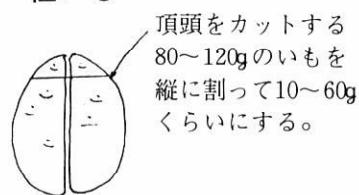 頂頭をカットする
80～120gのいもを
縦に割って10～60g
くらいにする。